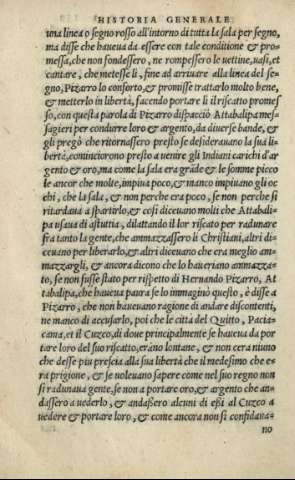 HISTORIA GENERALE
una linea o segno rosso all'intorno di tutta la sala per segno,
ma disse che haueua da essere con tale conditione & pro-
messa, che non fondessero, ne rompessero le nettine, uasi, et
cantare, che metesse lì, fine ad arriuare alla linea del se-
gno, Pizarro lo conforto, & promisse trattarlo molto bene,
& metterlo in libertà, facendo portare lì il riscatto promes
so, con questa parola di Pizarro dispacciò Attabalipa mes-
sagieri per condurre loro & argento, da diuerse bande, &
gli pregò che ritornassero presto se desiderauano la sua li-
bertà, cominciorono presto a uenire gli Indiani carichi d'ar
gento & oro, ma come la sala era grãde & le somme picco
le ancor che molte, impiua poco, & manco impiuano gli oc
chi, che la sala, & non perche era poco, se non perche si
ritardaua a spartirlo, & cosi diceuano molti che Attabali-
pa usaua di astuttia, dilattando il lor riscato per radunare
fra tanto la gente, che ammazzassero li Christiani, altri di-
ceuano per liberarlo, & altri diceuano che era meglio am-
mazzargli, & ancora dicono che lo haueriano ammazza-
to, se non fusse stato per rispetto di Hernando Pizarro, At
tabalipa, che haueua paura se lo immaginò questo, & disse a
Pizarro, che non haueuano ragione di andare discontenti,
ne manco di accusarlo, poi che le città del Quitto, Pacia-
cama, et il Cuzco, di doue principalmente se haueua da por
tare loro del suo riscatto, erãno lontane, & non cera niuno
che desse piu prescia alla sua libertà che il medesimo che e-
ra prigione, & se uoleuano sapere come nel suo regno non
si radunaua gente, se non a portare oro, & argento che an-
dassero a uederlo, & andassero alcuni di essi al Cuzco a
uedere & portare loro, & come ancora non si confidaua-
no